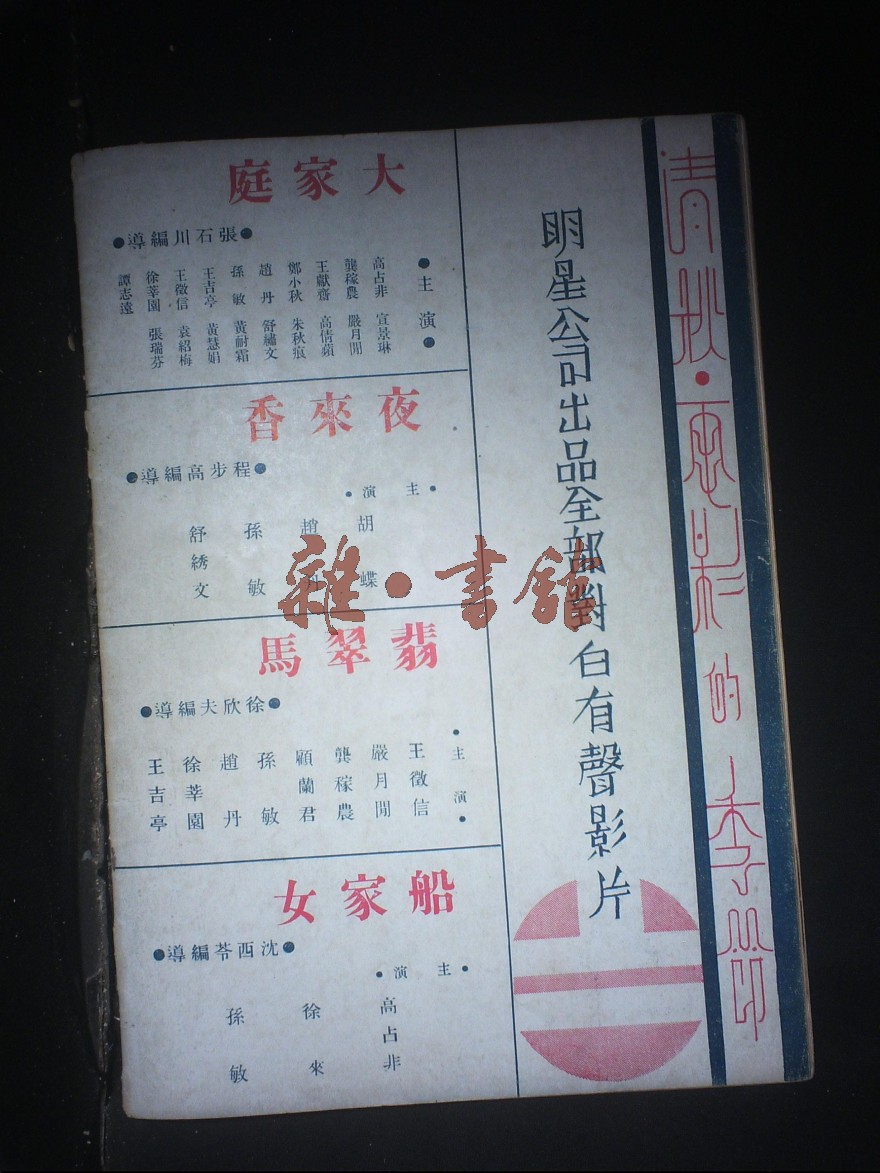 清秋·電影的季節
明星公司出品全部對白有聲影片
大家庭
●張石川編導●
●主演●
高占非 宣景琳
龔稼農 嚴月閒
王獻齋 高倩蘋
鄭小秋 朱秋痕
趙丹 舒繡文
孫敏 黃耐霜
王吉亭 黃慧娟
王徵信 袁紹梅
徐莘園 張瑞芬
譚志遠
夜來香
●程步高編導●
●主演●
胡蝶
趙丹
孫敏
舒綉文
翡翠馬
●徐欣夫編導●
●主演●
王徵信
嚴月閒
龔稼農
顧蘭君
孫敏
趙丹
徐莘園
王吉亭
船家女
●沈西苓編導●
●主演●
高占非
徐來
孫敏
雜·書館